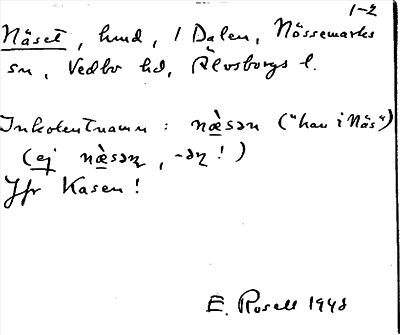 1-2
Näset, hmd, i Dalen, Nössemarks
sn, Vedbo hd, Älvsborgs l.
Inkolentnamn : næ̀sən ("han i Näs")
(ej næ̀səɳ, -əɳ!)
Jfr Kasen!
E. Rosell 1948